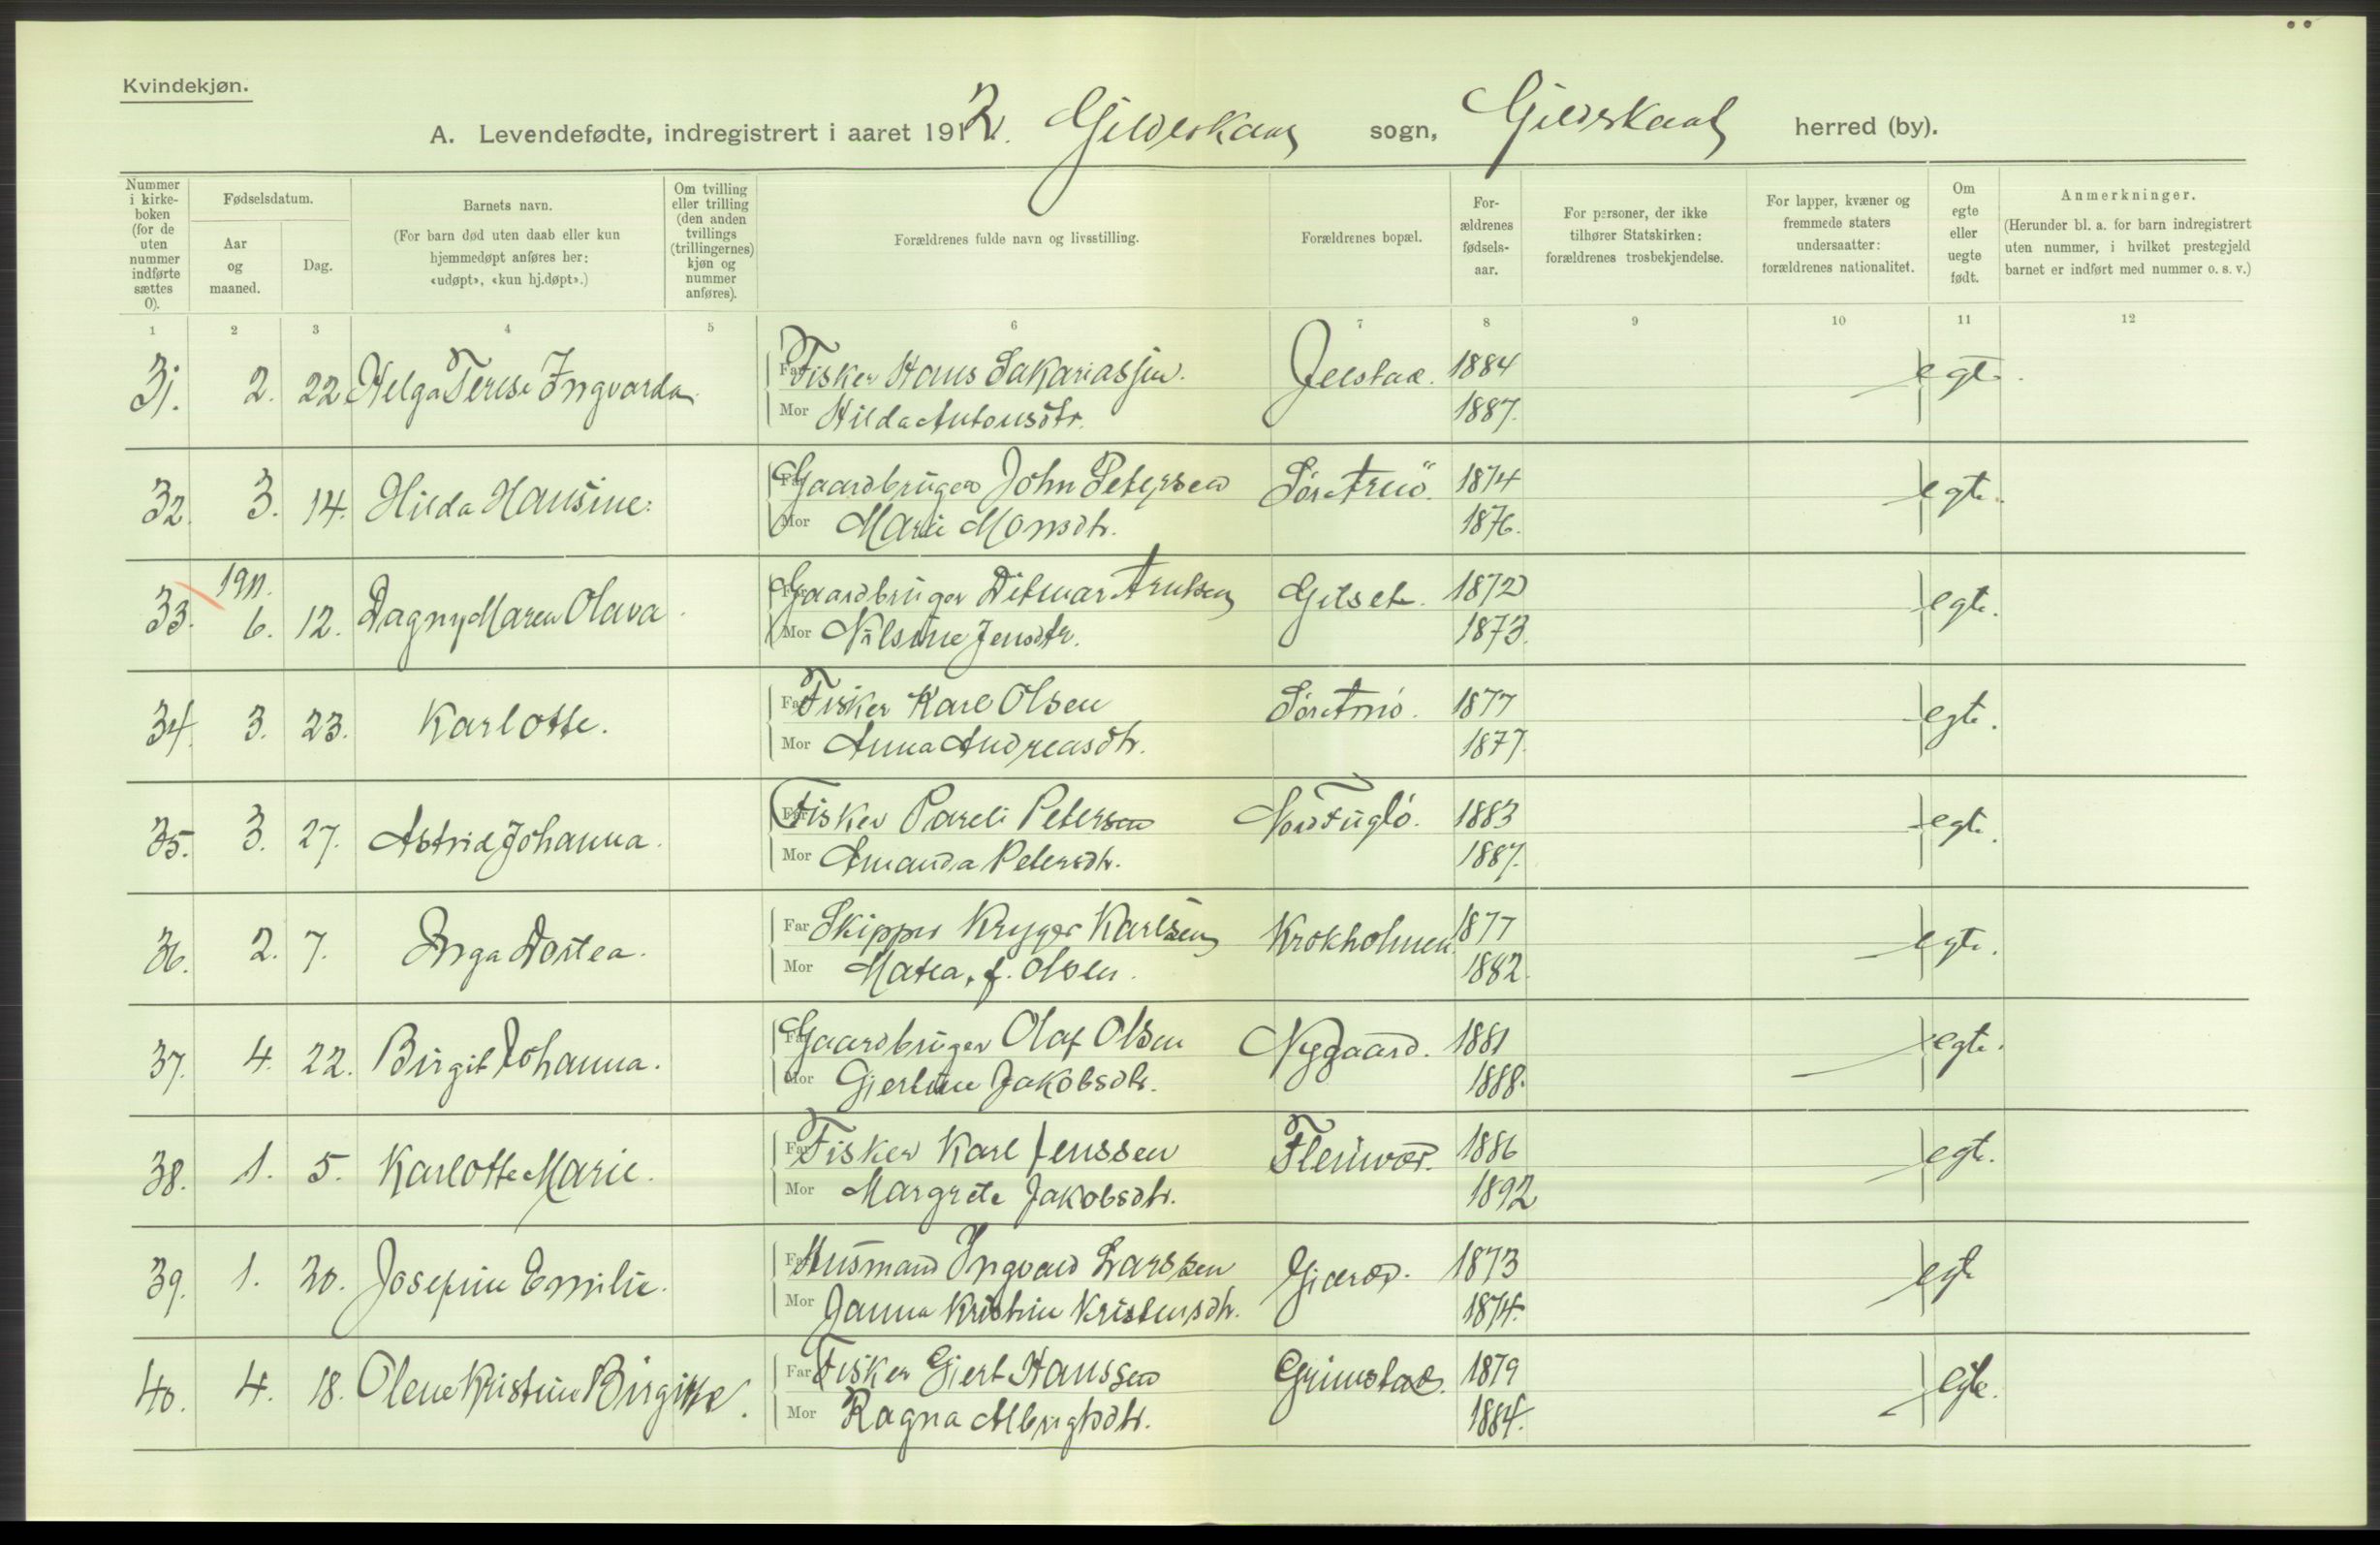 Kvindekjøn.
A. Levendefødte, indregistrert i aaret 1912. Gildeskaal sogn, Gildeskaal herred (by).
Nummer i kirkeboken (for de uten nummer indførte sættes 0).
Fødselsdatum.
Aar og maaned.
Dag.
Barnets navn.
(For barn død uten daab eller kun hjemmedøpt anføres her: «udøpt», «kun hj.døpt».)
Om tvilling eller trilling (den anden tvillings (trillingernes) kjøn og nummer anføres).
Forældrenes fulde navn og livsstilling.
Forældrenes bopæl.
Forældrenes fødselsaar.
For personer, der ikke tilhører Statskirken: forældrenes trosbekjendelse.
For lapper, kvæner og fremmede staters undersaatter: forældrenes nationalitet.
Om egte eller uegte født.
Anmerkninger.
(Herunder bl. a. for barn indregistrert uten nummer, i hvilket prestegjeld barnet er indført med nummer o. s. v.)
1 2 3 4 5 6 7 8 9 10 11 12
31. 2. 22 Helga Terese Ingvarda Far Fisker Hans Sakariassen. Jelstad. 1884 egte.
Mor Hilda Antonsdtr. 1887.
32. 3. 14. Hilda Hansine. Far Gaardbruger John Petersen Sør Arnö. 1874 egte.
Mor Marie Monsdtr. 1876.
33. 1911. 6. 12. Dagny Maren Olava Far Gaardbruger Ditmar Arntsen Gilset. 1872 egte.
Mor Nilsine Jensdtr. 1873.
34. 3. 23. Karlotte. Far Fisker Karl Olsen Sør Arnö. 1877 egte.
Mor Anna Andreasdtr. 1877.
35. 3. 27. Astrid Johanna. Far Fisker Pareli Petersen Nord Fuglö. 1883 egte.
Mor Amanda Petersdtr. 1887.
36. 2. 7. Inga Dortea. Far Skipper Kryger Karlsen Krokholmen. 1877 egte.
Mor Matea, f. Olsen. 1882.
37. 4. 22. Birgit Johanna. Far Gaardbruger Olaf Olsen Nygaard. 1881 egte.
Mor Gjertine Jakobsdtr. 1888.
38. 1. 5. Karlotte Marie. Far Fisker Karl Jenssen Fleinvær. 1886 egte.
Mor Margrete Jakobsdtr. 1892
39. 1. 20. Josefine Emilie. Far Husmand Ingvard Larssen 1873 egte
Mor Janna Kristine Kristensdtr. 1874.
40. 4. 18. Olene Kristine Birgitte. Far Fisker Gjert Hanssen Grimstad. 1879 egte.
Mor Ragna Albrigtsdtr. 1884.